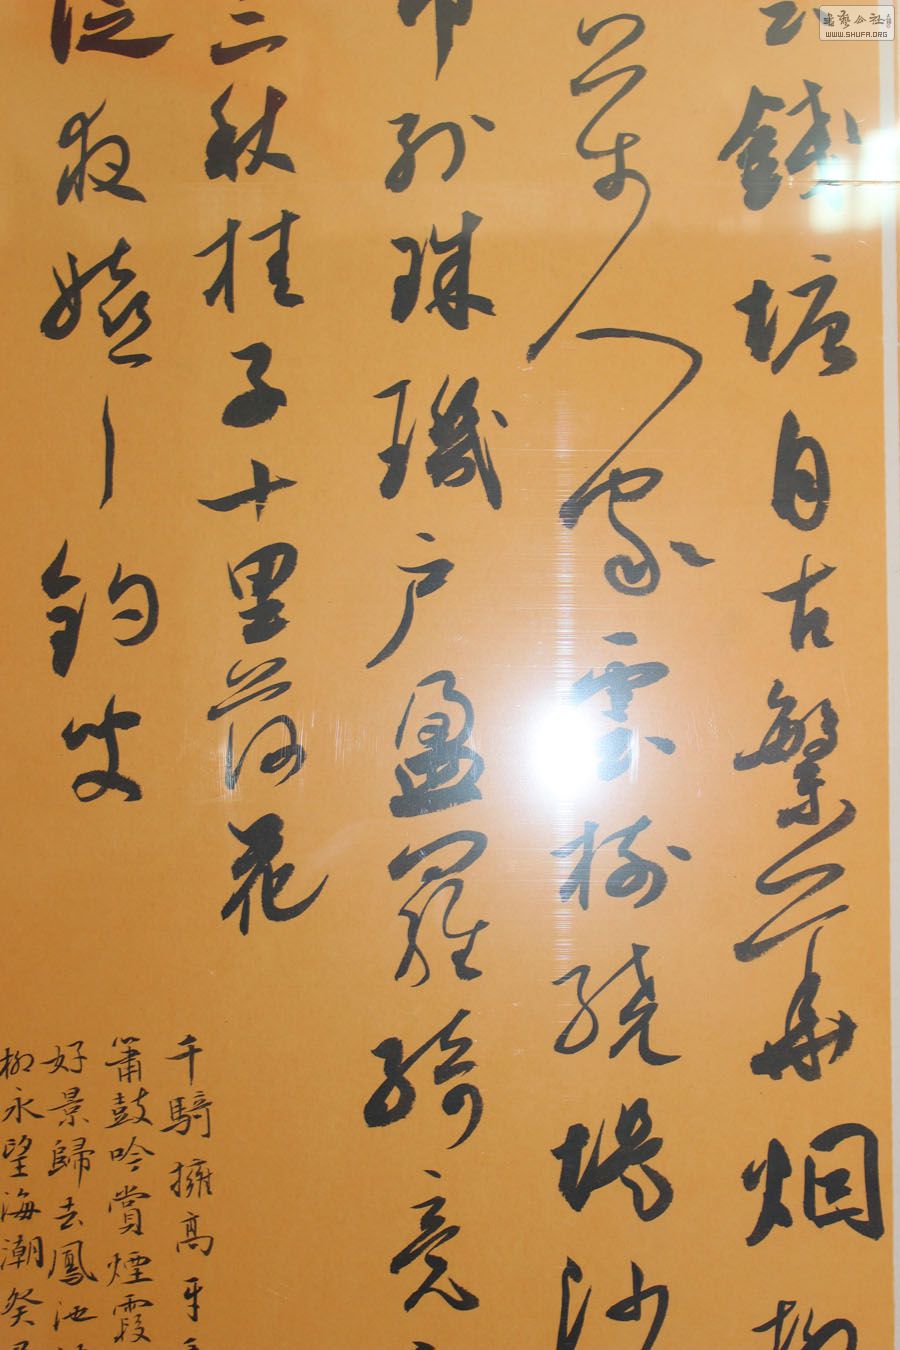 錢塘自古繁華烟柳
萬人家雲樹繞堤沙
市列珠璣戶盈羅綺競
三秋桂子十里荷花
泛夜嬉々釣叟
千騎擁高牙
簫鼓吟賞煙霞
好景歸去鳳池
柳永望海潮癸
WWW.SHUFA.ORG